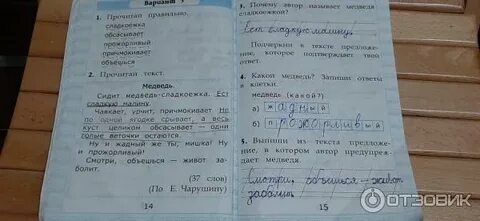 Вариант 3
1. Прочитай правильно.
сладкоежка
обсасывает
прожорливый
причмокивает
объешься
2. Прочитай текст.
Медведь.
Сидит медведь-сладкоежка. Ест
сладкую малину.
Чавкает, урчит, причмокивает Не
по одной ягодке срывает, а весь
куст целиком обсасывает — одни
голые веточки остаются.
Ну и жадный же ты, мишка! Ну
и прожорливый!
Смотри, объешься — живот за-
болит.
(37 слов)
(По Е. Чарушину)
14
3. Почему автор называет медведя
сладкоежкой?
Ест сладкую малину.
Подчеркни в тексте предложе-
ние, которое подтверждает твой
ответ.
4. Какой медведь? Запиши ответы
в клетки.
медведь (какой?)
а) жадный
б) прожорливый
5. Выпиши из текста предложе-
ние, в котором автор предупреж-
дает медведя.
Смотри, объешься — живот
заболит.
15
ОТЗОВИК